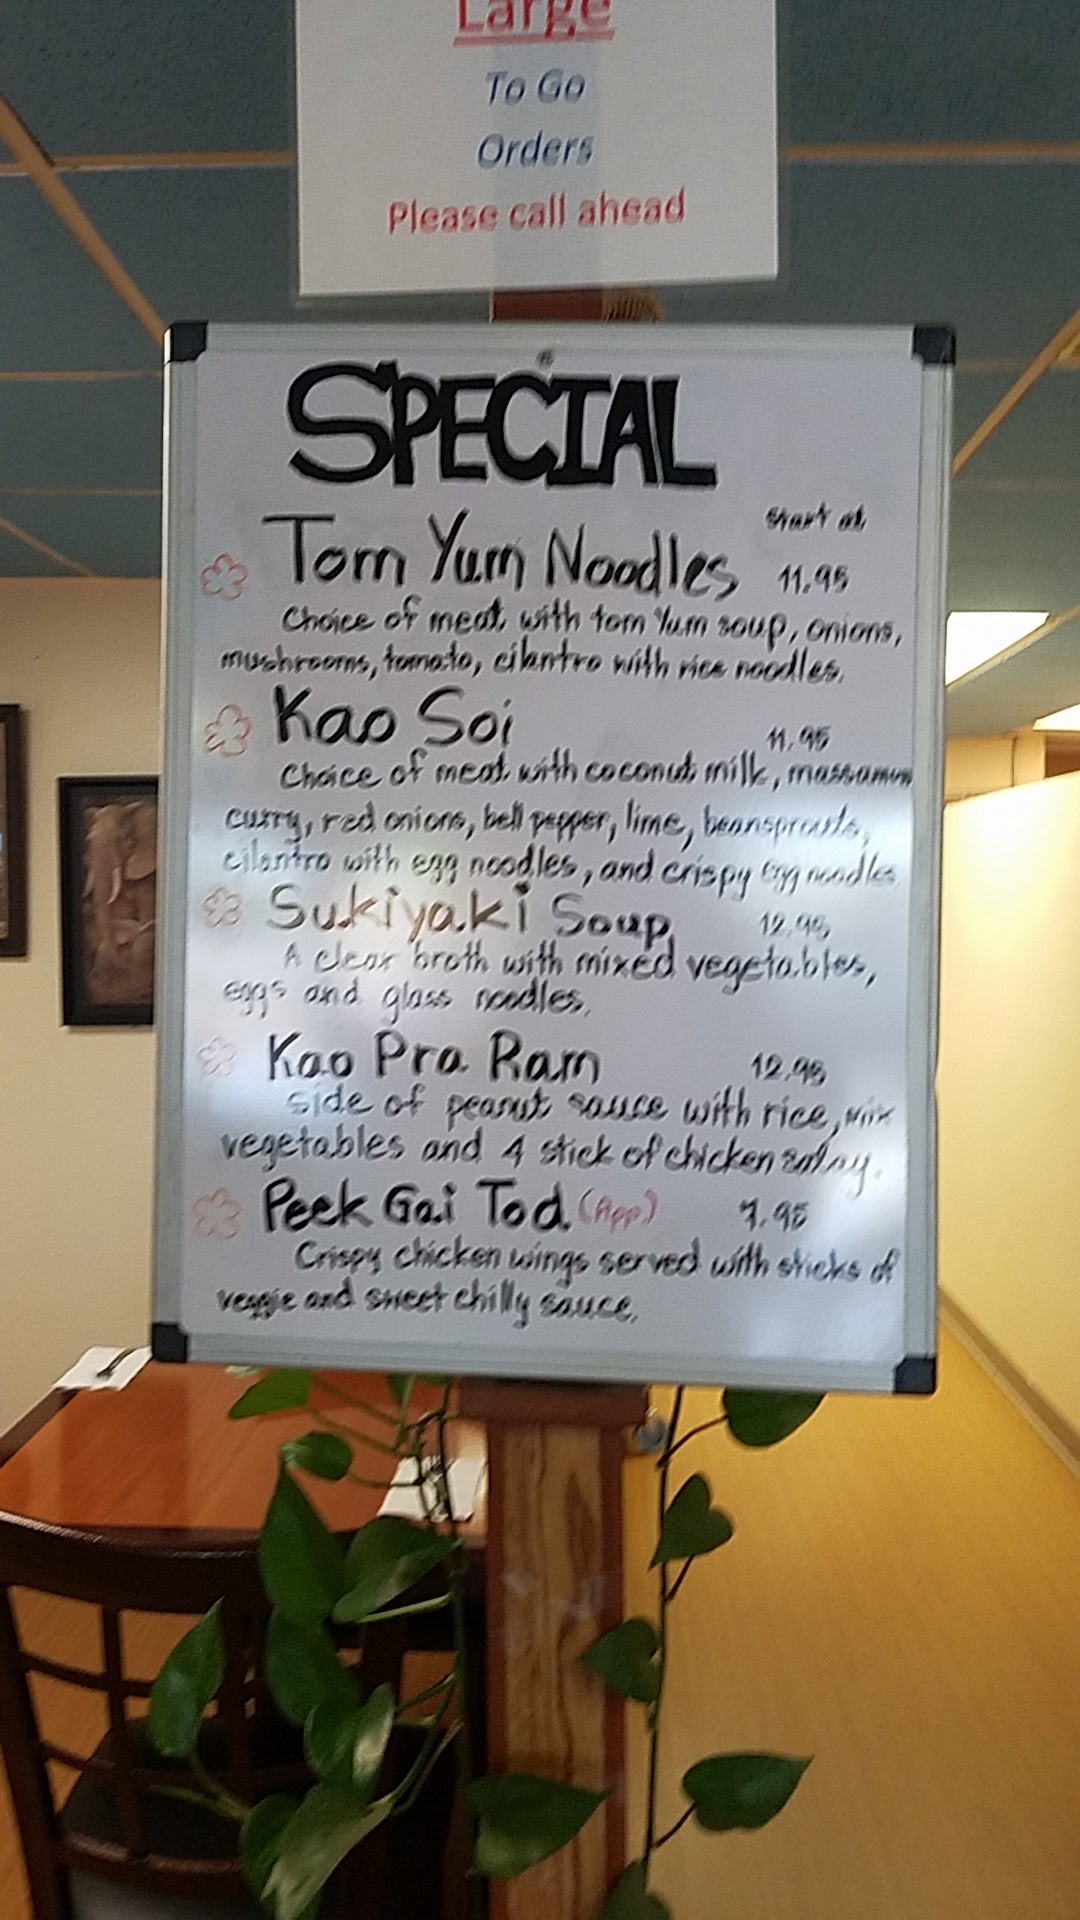 Large
To Go
Orders
Please call ahead
SPECIAL
Start at
Tom Yum Noodles 11.95
Choice of meat with tom Yum soup, onions,
mushrooms, tomato, cilantro with rice noodles.
Kao Soi 11.95
Choice of meat with coconut milk, massaman
curry, red onions, bell pepper, lime, beansprouts,
cilantro with egg noodles, and crispy egg noodles
Sukiyaki Soup 12.95
A clear broth with mixed vegetables,
eggs and glass noodles.
Kao Pra Ram 12.95
side of peanut sauce with rice, mix
vegetables and 4 stick of chicken satay.
Peek Gai Tod (App) 7.95
Crispy chicken wings served with sticks of
veggie and sweet chilly sauce.